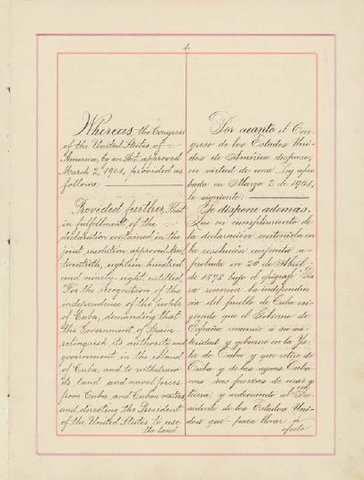 1.
Whereas the Congress
of the United States of
America, by an Act approved
March 2, 1901, provided as
follows:
Provided further, That
in fulfillment of the
declaration contained in the
joint resolution approved April
twentieth, eighteen hundred
and ninety-eight, entitled,
"For the recognition of the
independence of the people
of Cuba, demanding that
the Government of Spain
relinquish its authority and
government in the island
of Cuba, and to withdraw
its land and naval forces
from Cuba and Cuban waters
and directing the President
of the United States to use
the land
Por cuanto el Con-
greso de los Estados Uni-
dos de América dispuso,
en virtud de una Ley apro-
bada en Marzo 2 de 1901,
lo siguiente:
Se dispone además,
Que en cumplimiento de
la declaración contenida en
la resolución conjunta a-
probada en 20 de Abril
de 1898 bajo el epígrafe "Pa-
ra reconocer la independen-
cia del pueblo de Cuba exi-
giendo que el Gobierno de
España renuncie á su au-
toridad y gobierno en la Is-
la de Cuba y que retire de
Cuba y de las aguas Cuba-
nas sus fuerzas de mar y
tierra; y ordenando al Pre-
sidente de los Estados Uni-
dos que para llevar á
efecto